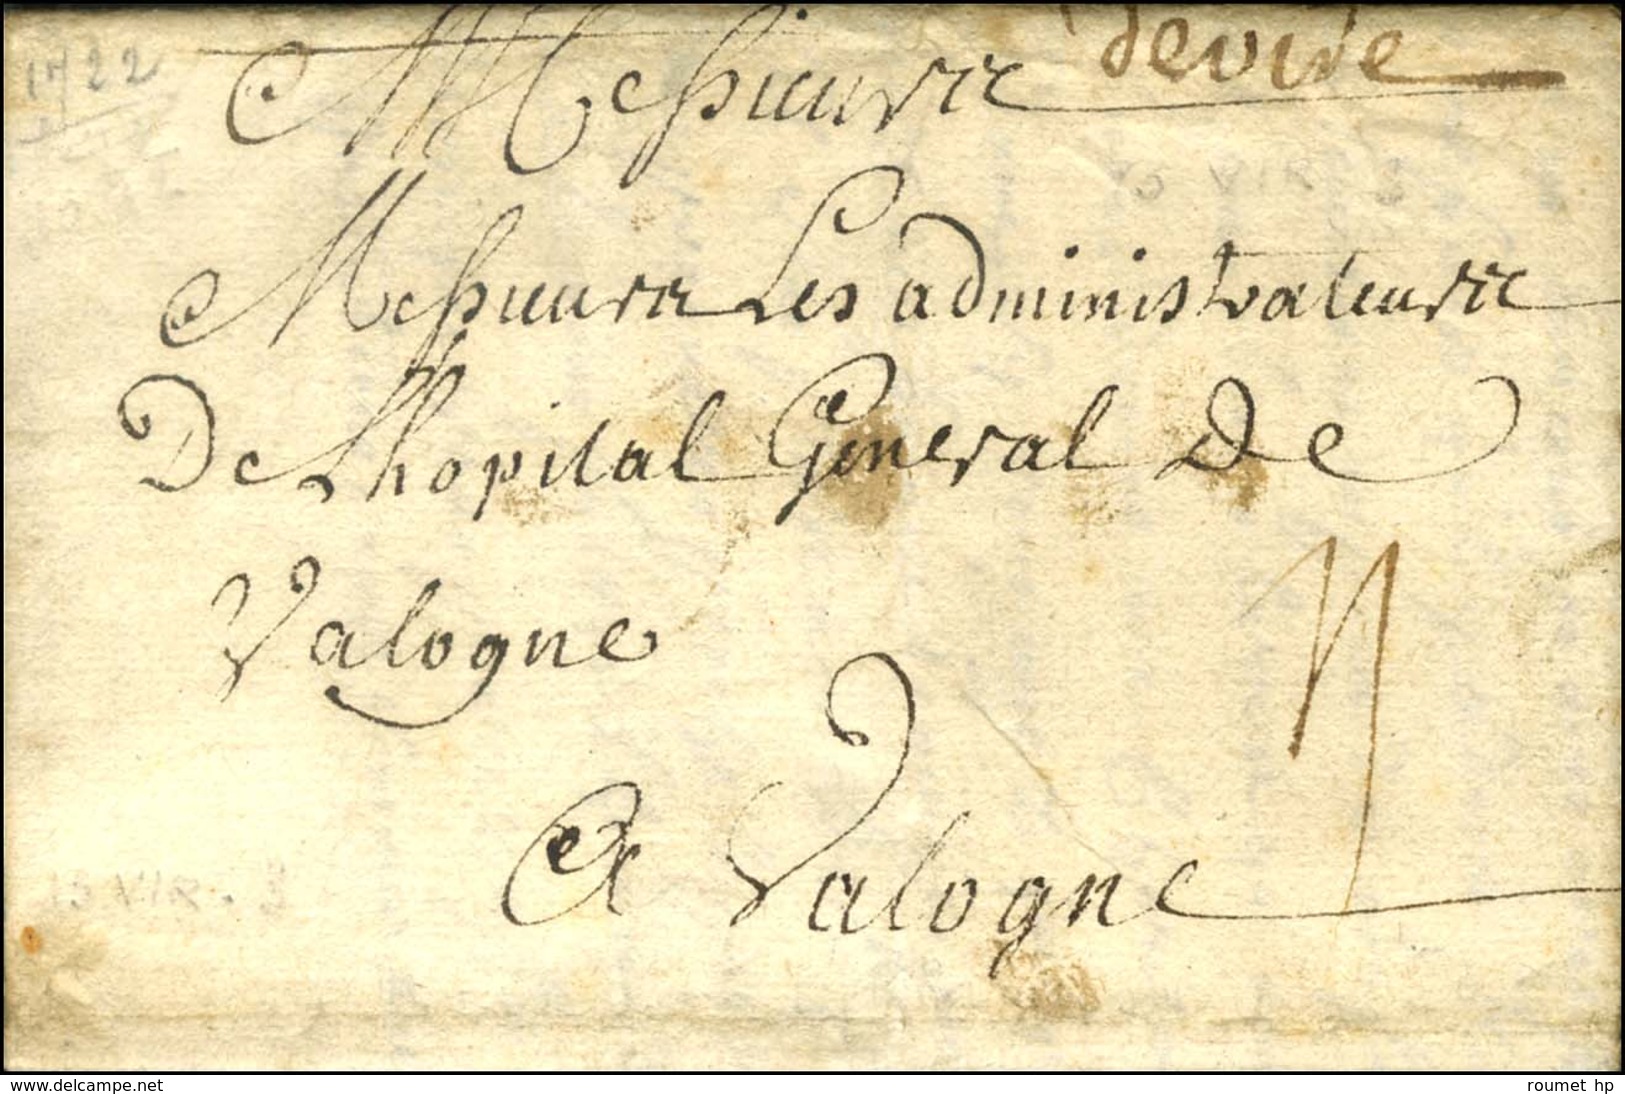 1722
devire
Messieurs
Messieurs Les administrateurs
De Lhopital General De
Valogne
A Valogne
13 VIR. 3
www.delcampe.net
roumet hp